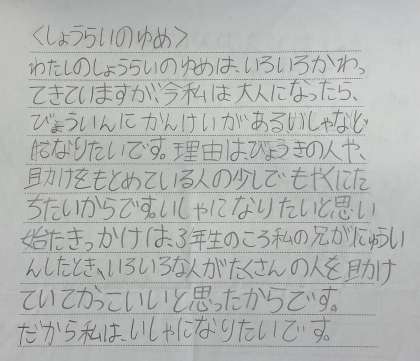 〈しょうらいのゆめ〉
わたしのしょうらいのゆめは、いろいろかわっ
てきていますが、今私は大人になったら、
びょういんにかんけいがあるいしゃなど
なりたいです。理由は、びょうきの人や、
助けをもとめている人の少しでもやくにた
ちたいからです。いしゃになりたいと思い
始たきっかけは、3年生のころ私の兄がにゅうい
んしたとき、いろいろな人がたくさんの人を助け
ていてかっこいいと思ったからです。
だから私は、いしゃになりたいです。